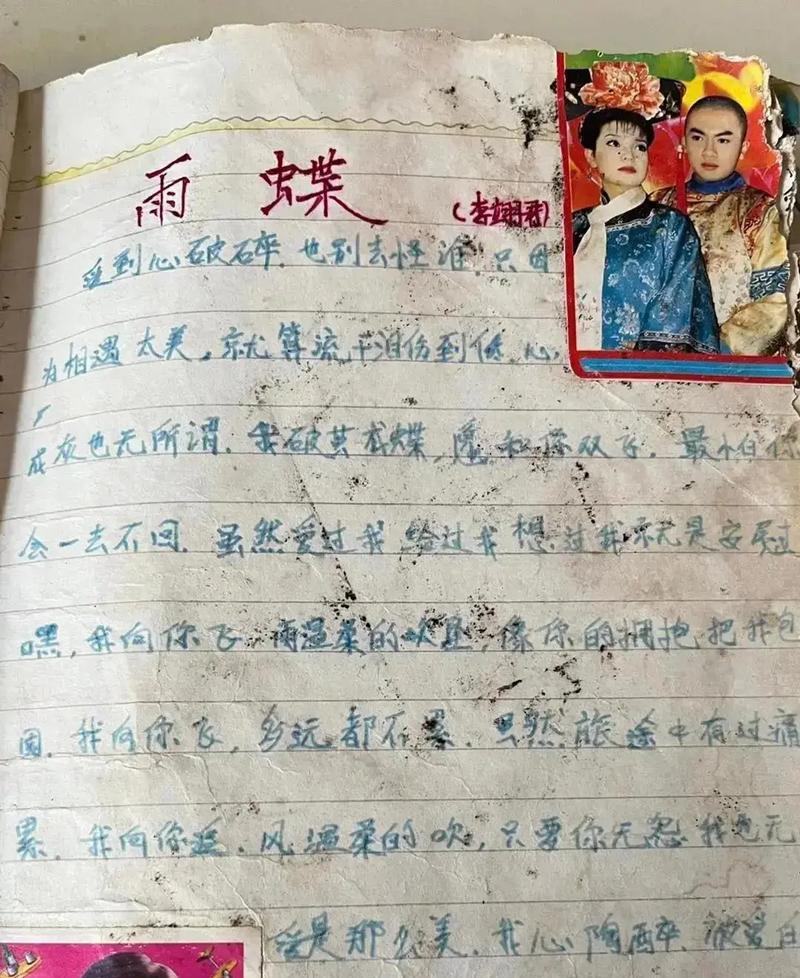 雨 蝶 (李翊君)
爱到心破碎.也别去怪谁.只因
为相遇太美.就算流干泪伤到底.心
成灰也无所谓.我破茧成蝶,愿和你双飞.最怕你
会一去不回.虽然爱过我给过我想过我就是安慰过
嘿,我向你飞.雨温柔的吹
像你的拥抱把我包
围.我向你飞,多远都不累.虽然旅途中有过痛
累.我向你追.风温柔的吹,只要你无怨我也无
爱是那么美.我心陶醉.被爱的